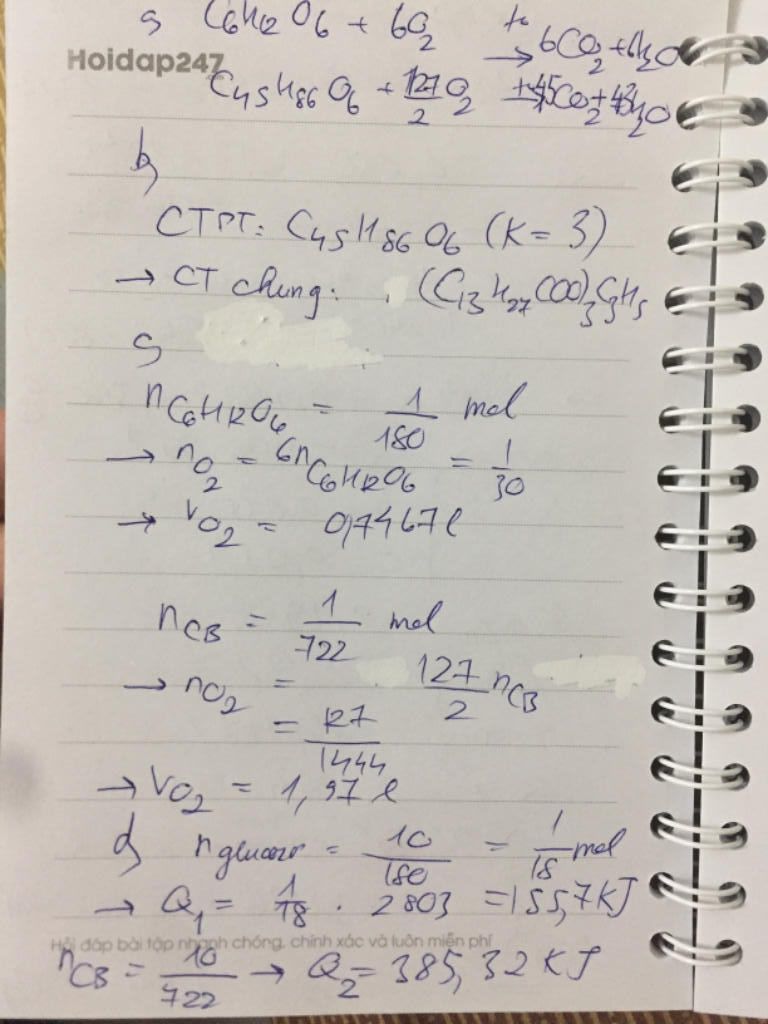 a, C6H12O6 + 6O2 t° → 6CO2 + 6H2O
Hoidap247
C45H86O6 + 127/2 O2 t° → 45CO2 + 43H2O
b,
CTPT: C45H86O6 (K = 3)
→ CT chung: (C13H27COO)3C3H5
c,
nC6H12O6 = 1/180 mol
→ nO2 = 6nC6H12O6 = 1/30
→ VO2 = 0,7467 l
nCB = 1/722 mol
→ nO2 = 127/2 nCB
= 127/1444
→ VO2 = 1,97 l
d, n glucozơ = 10/180 = 1/18 mol
→ Q1 = 1/18 . 2803 = 155,7 KJ
Hỏi đáp bài tập nhanh chóng, chính xác và luôn miễn phí
nCB = 10/722 → Q2 = 385,32 KJ